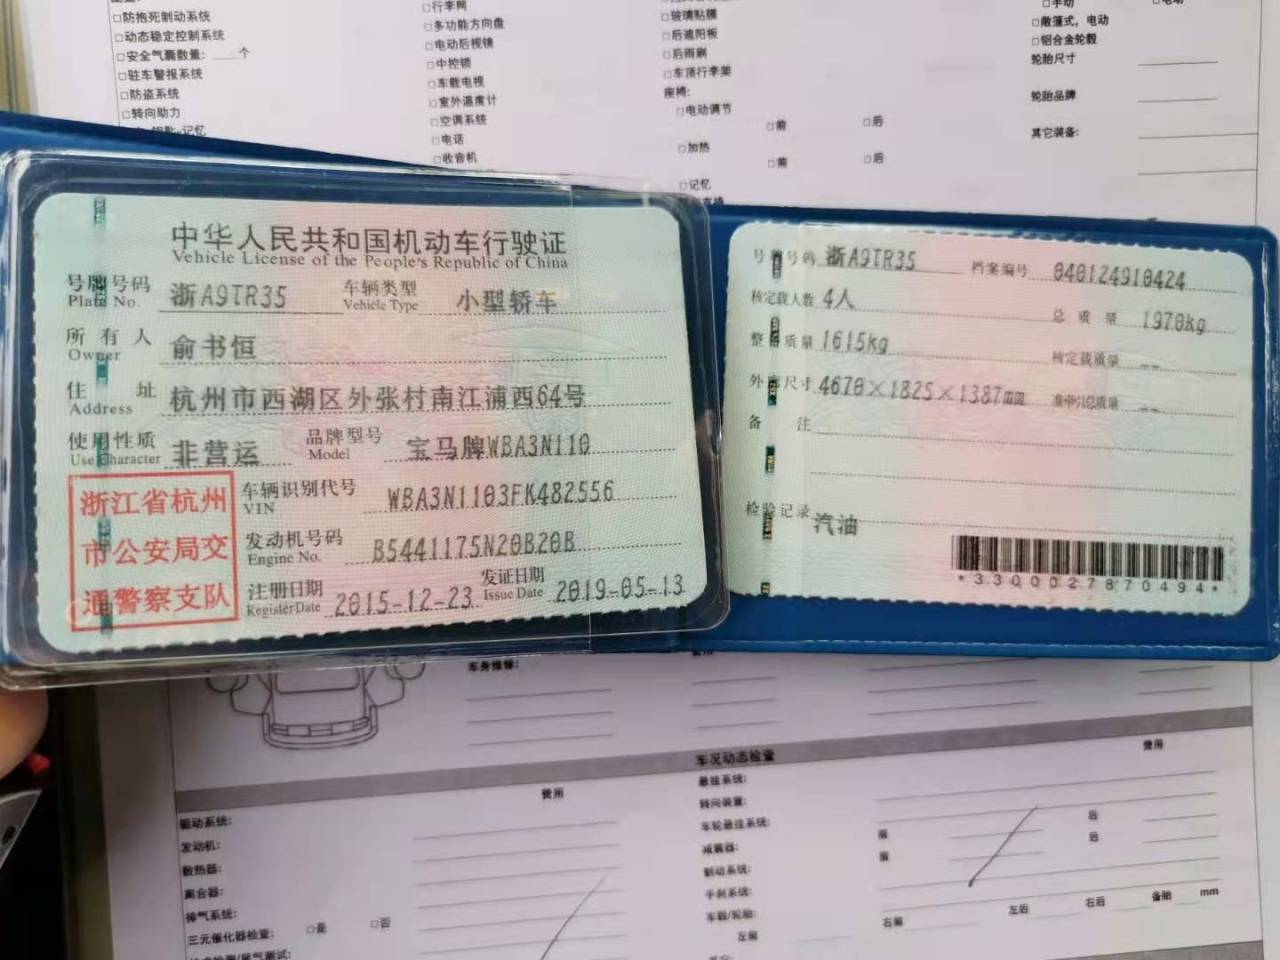 □防抱死制动系统
□动态稳定控制系统
□安全气囊数量: ___个
□驻车警报系统
□防盗系统
□转向助力
记忆
□行李网
□多功能方向盘
□电动后视镜
□中控锁
□车载电视
□室外温度计
□空调系统
□电话
□收音机
□玻璃贴膜
□后遮阳板
□后雨刷
□车顶行李架
座椅:
□电动调节
□前 □后
□加热
□前 □后
□记忆
□手动
□敞篷式，电动
□铝合金轮毂
轮胎尺寸
轮胎品牌
其它装备:
中华人民共和国机动车行驶证
Vehicle License of the People's Republic of China
号牌号码 浙A9TR35 车辆类型 小型轿车
Plate No. Vehicle Type
所有人 俞书恒
Owner
住址 杭州市西湖区外张村南江浦西64号
Address
使用性质 非营运 品牌型号 宝马牌WBA3N110
Use Character Model
浙江省杭州
市公安局交
通警察支队
车辆识别代号 WBA3N1103FK482556
VIN
发动机号码 B5441175N20B20B
Engine No.
注册日期 2015-12-23 发证日期 2019-05-13
Register Date Issue Date
号牌号码 浙A9TR35 档案编号 040124910424
核定载人数 4人 总质量 1970kg
整备质量 1615kg 核定载质量 --
外廓尺寸 4670×1825×1387mm 准牵引总质量 --
备注
检验记录 汽油
*3300027870494*
车身维修:
费用
车况动态检查
费用
费用
驱动系统:
发动机:
散热器:
离合器:
排气系统:
三元催化器检查: □是 □否
悬挂系统:
转向装置:
车轮悬挂系统: 前 后
减震器: 前 后
制动系统:
手刹系统:
车毂/轮胎:
左前 右前 左后 右后 备胎 mm